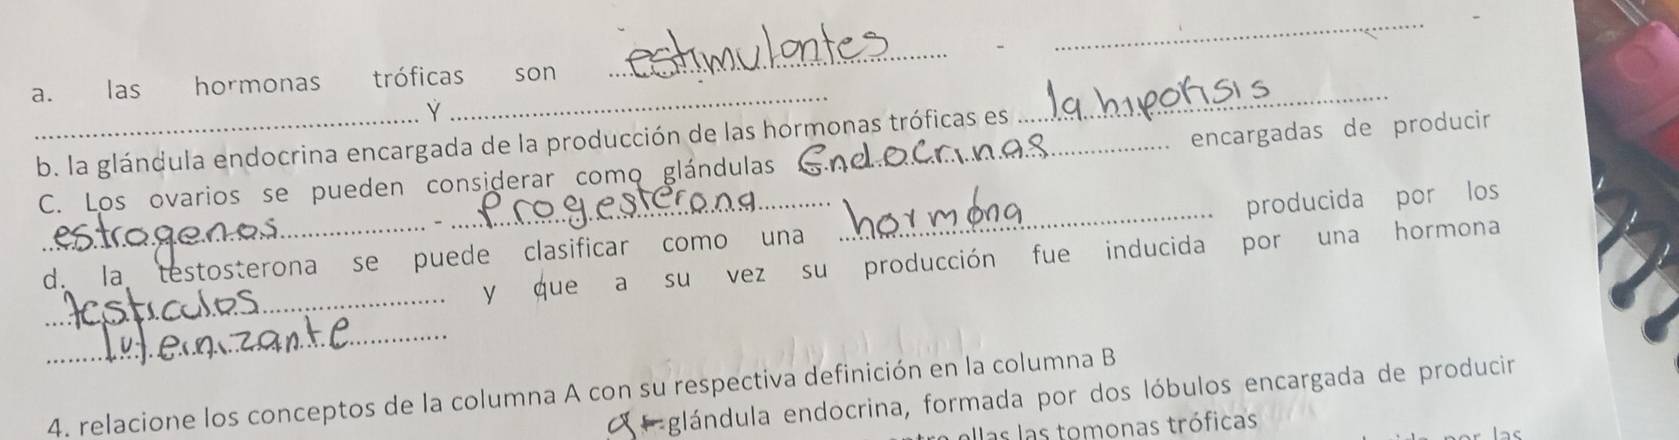 a. las hormonas tróficas son estimulantes -
Y
b. la glándula endocrina encargada de la producción de las hormonas tróficas es la hipofisis
C. Los ovarios se pueden considerar como glándulas Endocrinas encargadas de producir
estrogenos - Progesterona
d. la testosterona se puede clasificar como una hormona producida por los
testiculos y que a su vez su producción fue inducida por una hormona
luteinizante
4. relacione los conceptos de la columna A con su respectiva definición en la columna B
glándula endocrina, formada por dos lóbulos encargada de producir
las tomonas tróficas